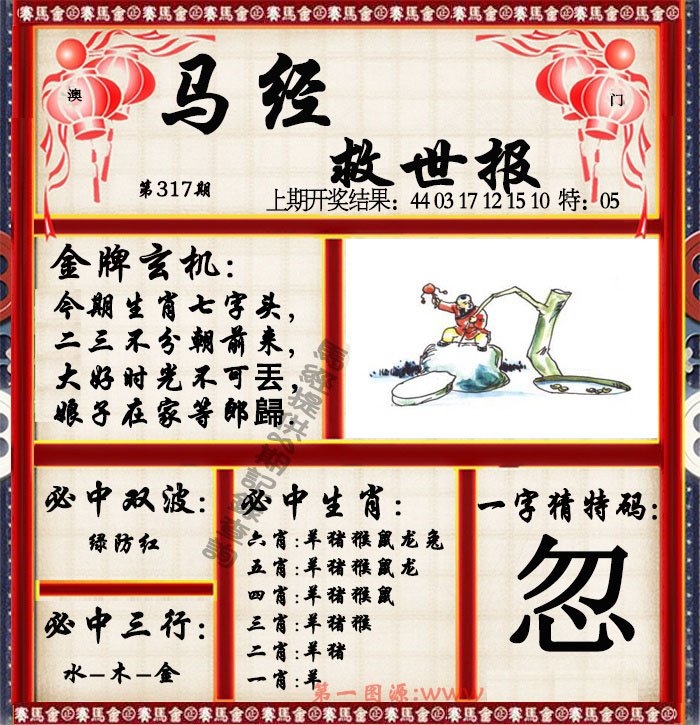 賽馬會 賽馬會 賽馬會 賽馬會 賽馬會 賽馬會 賽馬會 賽馬會
澳
门
马经
救世报
第317期
上期开奖结果：44 03 17 12 15 10 特：05
金牌玄机：
今期生肖七字头，
二三不分朝前来，
大好时光不可丟，
娘子在家等郎歸.
必中双波：
绿防红
必中三行：
水-木-金
必中生肖：
六肖:羊猪猴鼠龙兔
五肖:羊猪猴鼠龙
四肖:羊猪猴鼠
三肖:羊猪猴
二肖:羊猪
一肖:羊
一字猜特码:
忽
第一图源:www